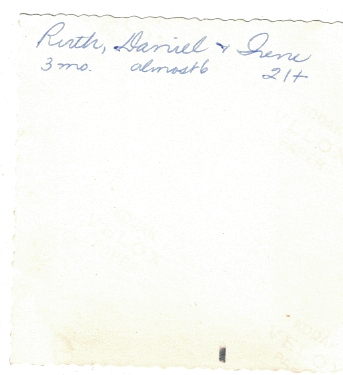 Ruth, Daniel + Irene
3 mo. almost 6 21+